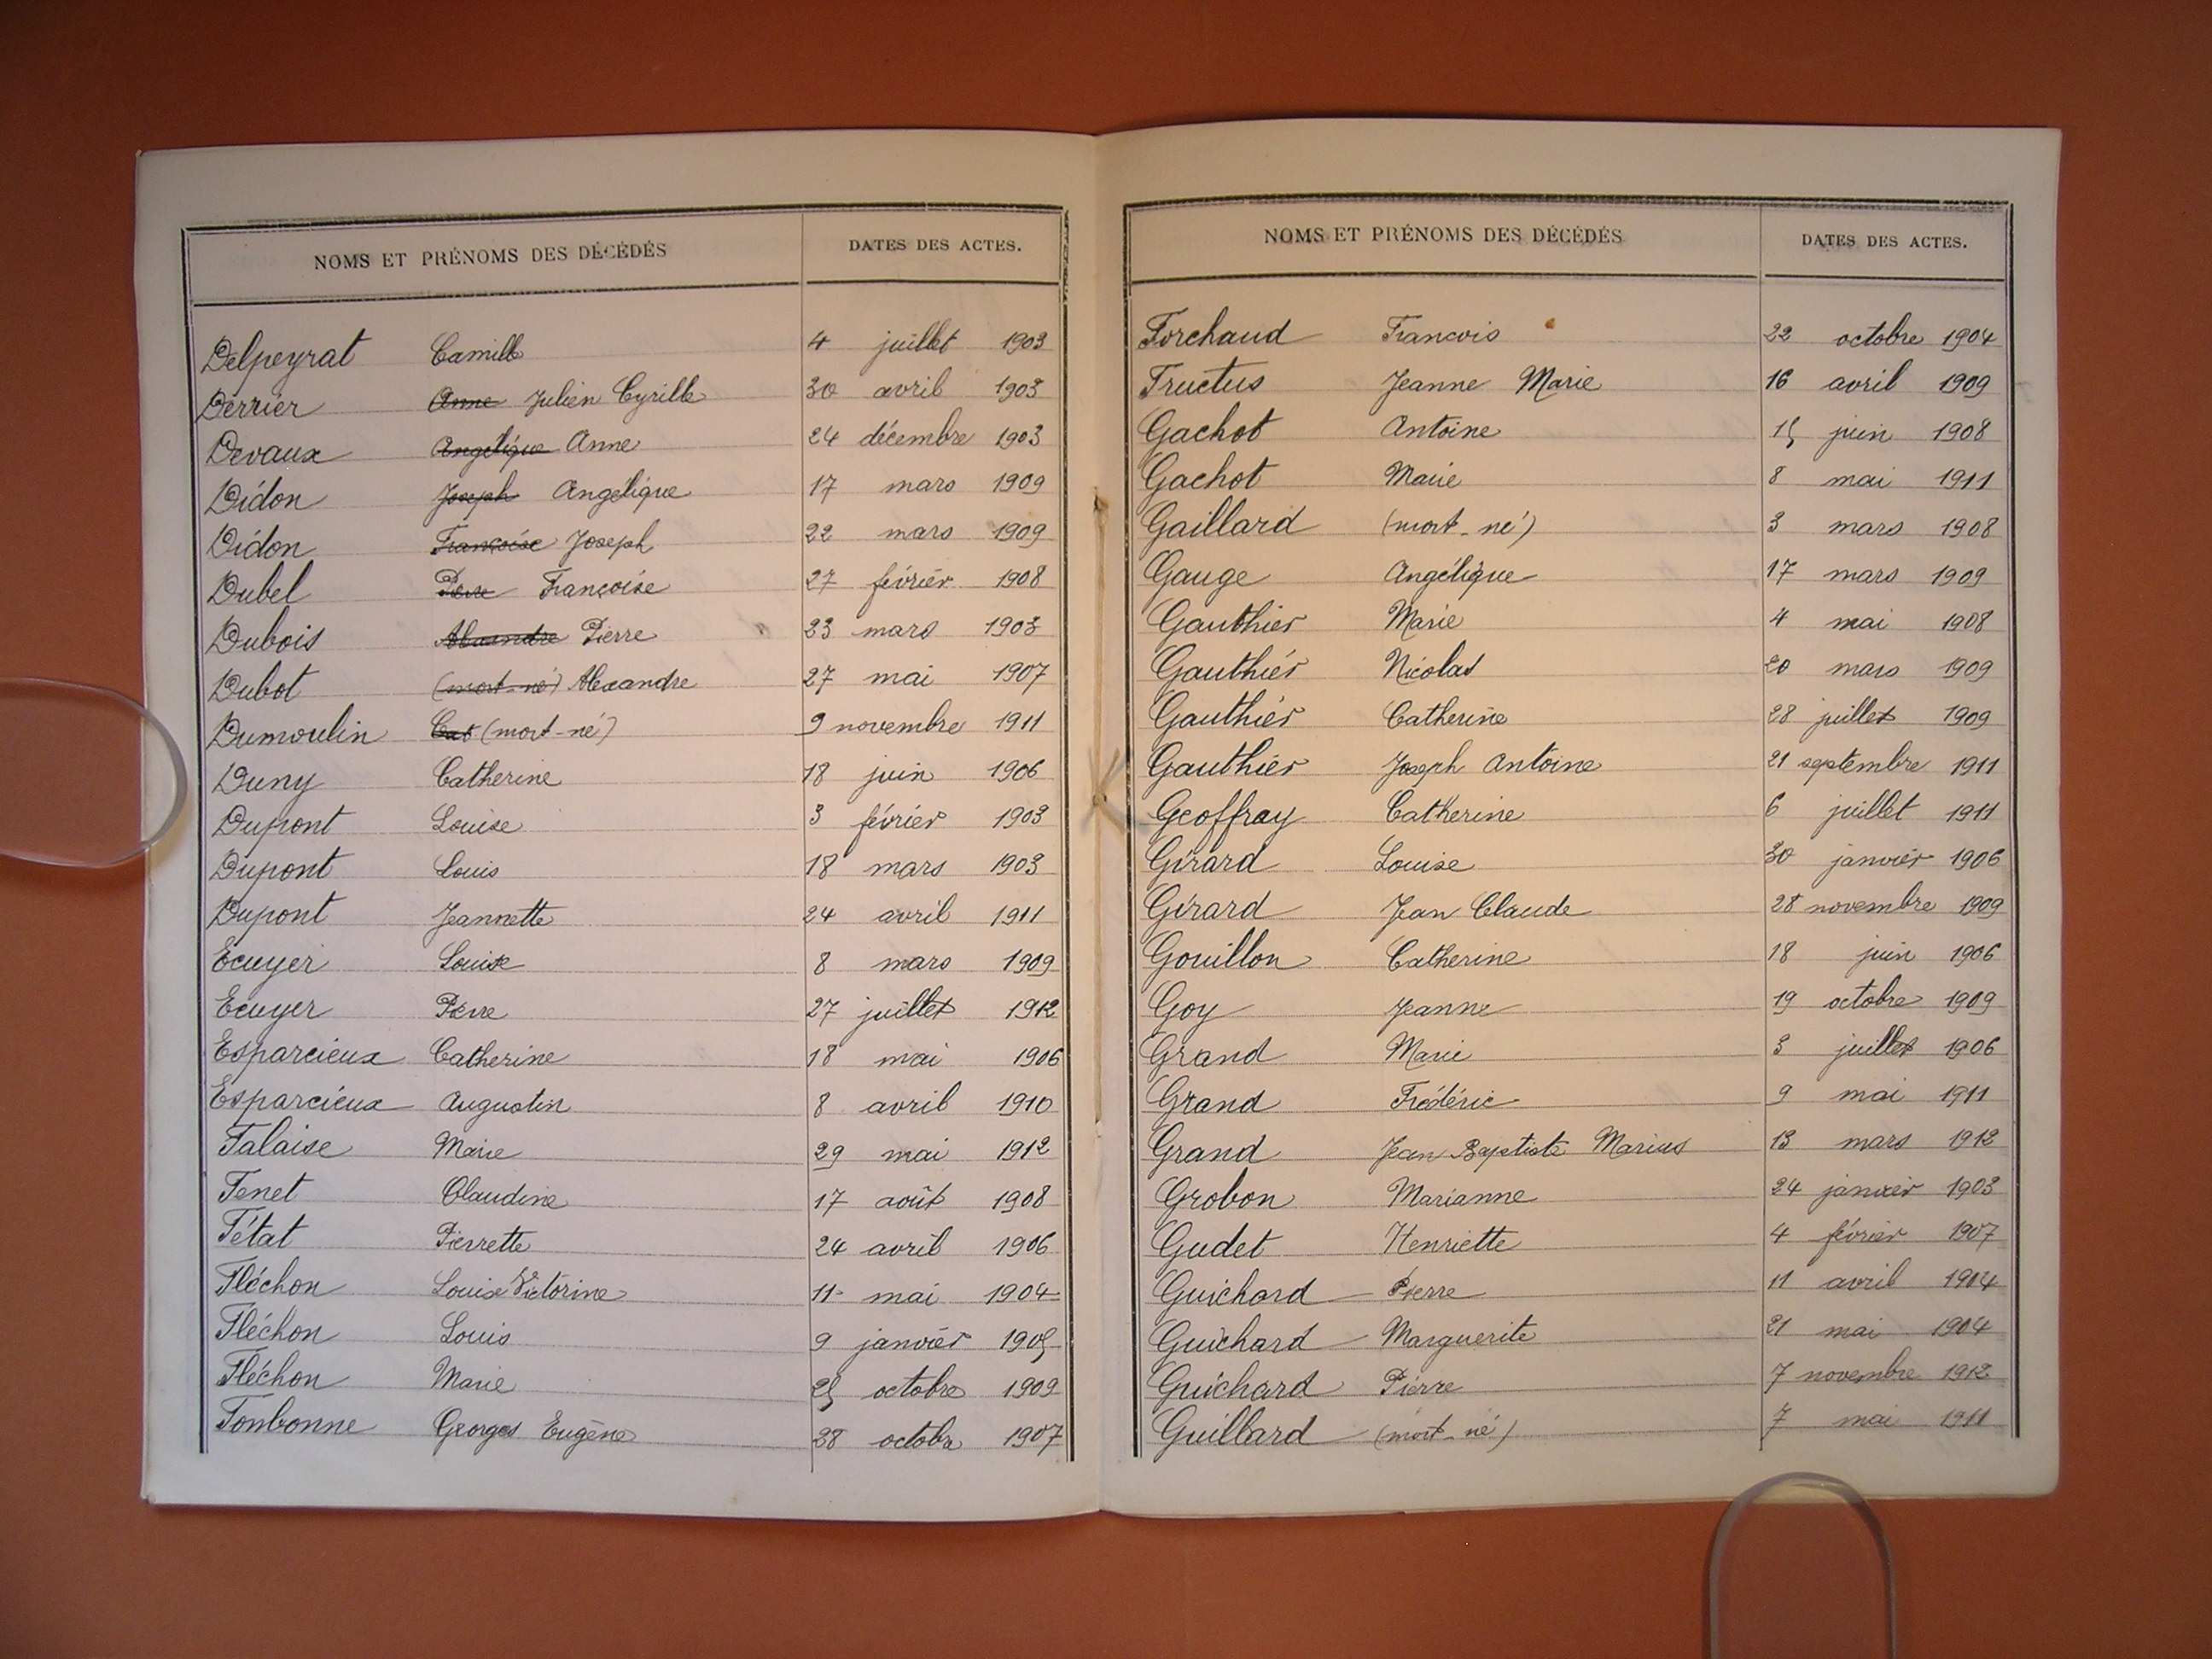 NOMS ET PRÉNOMS DES DÉCÉDÉS DATES DES ACTES.
Delpeyrat Camille 4 juillet 1903
Derrier Anne Julien Cyrille 30 avril 1903
Devaux Angélique Anne 24 décembre 1903
Didon Joseph Angélique 17 mars 1909
Didon Françoise Joseph 22 mars 1909
Dubel Pierre Françoise 27 février 1908
Dubois Alexandre Pierre 23 mars 1903
Dubot (mort-né) Alexandre 27 mai 1907
Dumoulin Cat (mort-né) 9 novembre 1911
Duny Catherine 18 juin 1906
Dupont Louise 3 février 1903
Dupont Louis 18 mars 1903
Dupont Jeannette 24 avril 1911
Ecuyer Louise 8 mars 1909
Ecuyer Pierre 27 juillet 1912
Esparcieux Catherine 18 mai 1906
Esparcieux Augustin 8 avril 1910
Falaise Marie 29 mai 1912
Fenet Claudine 17 août 1908
Fétat Pierrette 24 avril 1906
Fléchon Louise Victorine 11 mai 1904
Fléchon Louis 9 janvier 1905
Fléchon Marie 25 octobre 1909
Fonbonne Georges Eugène 28 octobre 1907
NOMS ET PRÉNOMS DES DÉCÉDÉS DATES DES ACTES.
Forchaud Francois 22 octobre 1904
Fructus Jeanne Marie 16 avril 1909
Gachot Antoine 15 juin 1908
Gachot Marie 8 mai 1911
Gaillard (mort-né) 3 mars 1908
Gauge Angélique 17 mars 1909
Gauthier Marie 4 mai 1908
Gauthier Nicolas 20 mars 1909
Gauthier Catherine 28 juillet 1909
Gauthier Joseph Antoine 21 septembre 1911
Geoffray Catherine 6 juillet 1911
Girard Louise 30 janvier 1906
Girard Jean Claude 28 novembre 1909
Gouillon Catherine 18 juin 1906
Goy Jeanne 19 octobre 1909
Grand Marie 3 juillet 1906
Grand Frédéric 9 mai 1911
Grand Jean Baptiste Marius 13 mars 1912
Grobon Marianne 24 janvier 1903
Gudet Henriette 4 février 1907
Guichard Pierre 11 avril 1904
Guichard Marguerite 21 mai 1904
Guichard Pierre 7 novembre 1912
Guillard (mort-né) 7 mai 1911